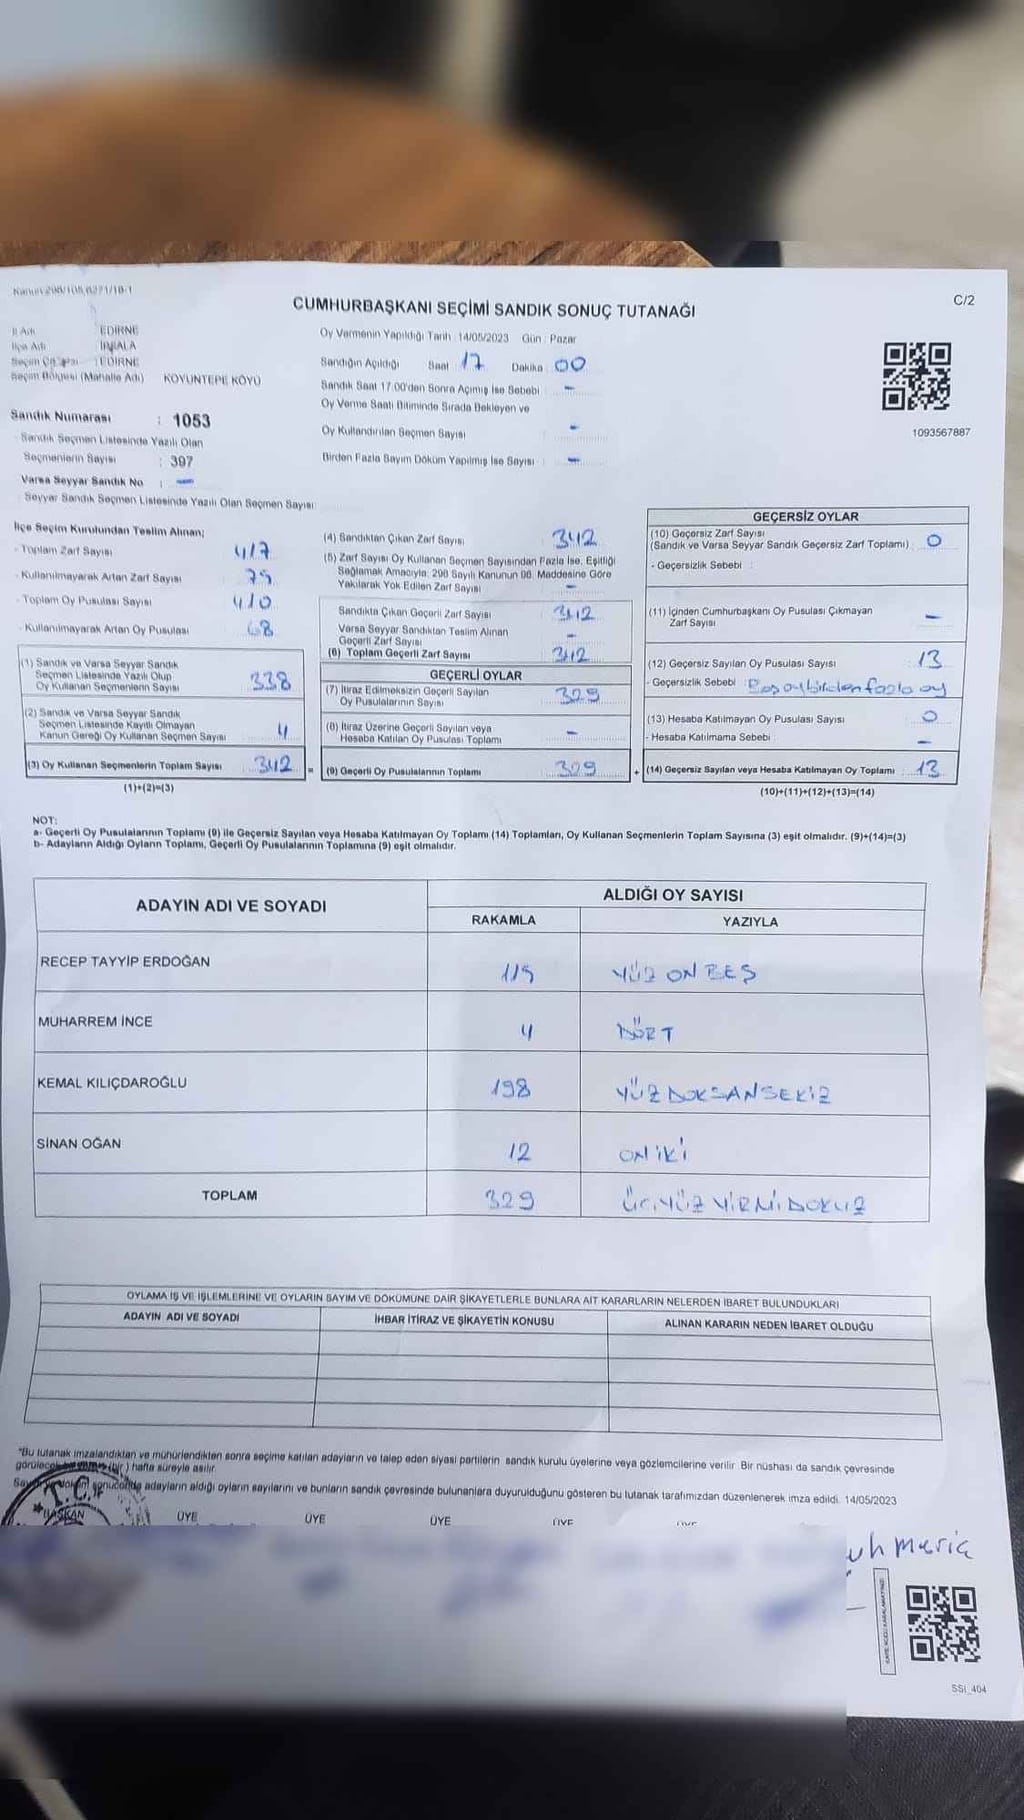 Kanun 298/105,6271/18-1
CUMHURBAŞKANI SEÇİMİ SANDIK SONUÇ TUTANAĞI
C/2
İl Adı : EDİRNE
İlçe Adı : İPSALA
Seçim Çevresi : EDİRNE
Seçim Bölgesi (Mahalle Adı) KOYUNTEPE KÖYÜ
Sandık Numarası : 1053
Sandık Seçmen Listesinde Yazılı Olan
Seçmenlerin Sayısı : 397
Varsa Seyyar Sandık No : -
Seyyar Sandık Seçmen Listesinde Yazılı Olan Seçmen Sayısı:
Oy Vermenin Yapıldığı Tarih :14/05/2023 Gün : Pazar
Sandığın Açıldığı Saat 17 Dakika : 00
Sandık Saat 17.00'den Sonra Açımış İse Sebebi : -
Oy Verme Saati Bitiminde Sırada Bekleyen ve
Oy Kullandırılan Seçmen Sayısı : -
Birden Fazla Sayım Döküm Yapılmış İse Sayısı : -
1093567887
İlçe Seçim Kurulundan Teslim Alınan;
- Toplam Zarf Sayısı : 417
- Kullanılmayarak Artan Zarf Sayısı : 75
- Toplam Oy Pusulası Sayısı : 410
- Kullanılmayarak Artan Oy Pusulası : 68
(1) Sandık ve Varsa Seyyar Sandık
Seçmen Listesinde Yazılı Olup
Oy Kullanan Seçmenlerin Sayısı : 338
(2) Sandık ve Varsa Seyyar Sandık
Seçmen Listesinde Kayıtlı Olmayan
Kanun Gereği Oy Kullanan Seçmen Sayısı : 4
(3) Oy Kullanan Seçmenlerin Toplam Sayısı : 342
(1)+(2)=(3)
=
(4) Sandıktan Çıkan Zarf Sayısı : 342
(5) Zarf Sayısı Oy Kullanan Seçmen Sayısından Fazla İse, Eşitliği
Sağlamak Amacıyla, 298 Sayılı Kanunun 98. Maddesine Göre
Yakılarak Yok Edilen Zarf Sayısı : -
Sandıkta Çıkan Geçerli Zarf Sayısı : 342
Varsa Seyyar Sandıktan Teslim Alınan
Geçerli Zarf Sayısı : -
(6) Toplam Geçerli Zarf Sayısı : 342
GEÇERLİ OYLAR
(7) İtiraz Edilmeksizin Geçerli Sayılan
Oy Pusulalarının Sayısı : 329
(8) İtiraz Üzerine Geçerli Sayılan veya
Hesaba Katılan Oy Pusulası Toplamı : -
(9) Geçerli Oy Pusulalarının Toplamı : 329
+
GEÇERSİZ OYLAR
(10) Geçersiz Zarf Sayısı
(Sandık ve Varsa Seyyar Sandık Geçersiz Zarf Toplamı) : 0
- Geçersizlik Sebebi :
(11) İçinden Cumhurbaşkanı Oy Pusulası Çıkmayan
Zarf Sayısı : -
(12) Geçersiz Sayılan Oy Pusulası Sayısı : 13
- Geçersizlik Sebebi : Boş oy birden fazla oy
(13) Hesaba Katılmayan Oy Pusulası Sayısı : 0
- Hesaba Katılmama Sebebi : -
(14) Geçersiz Sayılan veya Hesaba Katılmayan Oy Toplamı : 13
(10)+(11)+(12)+(13)=(14)
NOT:
a- Geçerli Oy Pusulalarının Toplamı (9) ile Geçersiz Sayılan veya Hesaba Katılmayan Oy Toplamı (14) Toplamları, Oy Kullanan Seçmenlerin Toplam Sayısına (3) eşit olmalıdır. (9)+(14)=(3)
b- Adayların Aldığı Oyların Toplamı, Geçerli Oy Pusulalarının Toplamına (9) eşit olmalıdır.
ADAYIN ADI VE SOYADI
ALDIĞI OY SAYISI
RAKAMLA YAZIYLA
RECEP TAYYİP ERDOĞAN 115 YÜZ ON BEŞ
MUHARREM İNCE 4 DÖRT
KEMAL KILIÇDAROĞLU 198 YÜZ DOKSAN SEKİZ
SİNAN OĞAN 12 ON İKİ
TOPLAM 329 ÜÇ YÜZ YİRMİ DOKUZ
OYLAMA İŞ VE İŞLEMLERİNE VE OYLARIN SAYIM VE DÖKÜMÜNE DAİR ŞİKAYETLERLE BUNLARA AİT KARARLARIN NELERDEN İBARET BULUNDUKLARI
ADAYIN ADI VE SOYADI İHBAR İTİRAZ VE ŞİKAYETİN KONUSU ALINAN KARARIN NEDEN İBARET OLDUĞU
*Bu tutanak imzalandıktan ve mühürlendikten sonra seçime katılan adayların ve talep eden siyasi partilerin sandık kurulu üyelerine veya gözlemcilerine verilir. Bir nüshası da sandık çevresinde
görülecek (bir) hafta süreyle asılır.
sonucunda adayların aldığı oyların sayılarını ve bunların sandık çevresinde bulunanlara duyurulduğunu gösteren bu tutanak tarafımızdan düzenlenerek imza edildi. 14/05/2023
T.C.
BAŞKAN ÜYE ÜYE ÜYE ÜYE
SSİ_404